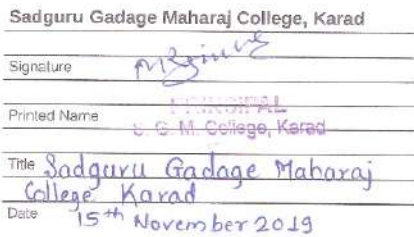 Sadguru Gadage Maharaj College, Karad
Signature
Printed Name PRINCIPAL
S. G. M. College, Karad
Title Sadguru Gadage Maharaj
College Karad
Date 15th November 2019